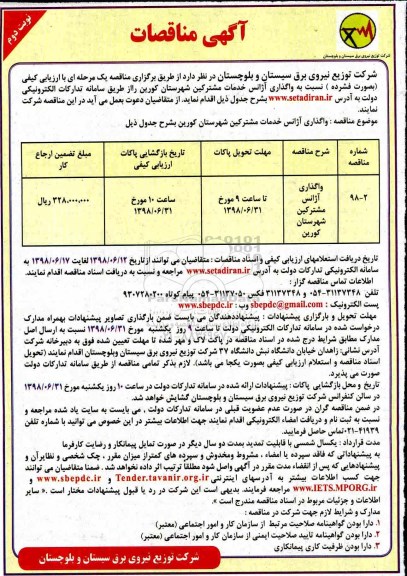 نوبت دوم
آگهی مناقصات
شرکت توزیع نیروی برق سیستان و بلوچستان
شرکت توزیع نیروی برق سیستان و بلوچستان در نظر دارد از طریق برگزاری مناقصه یک مرحله ای با ارزیابی کیفی
(بصورت فشرده ) نسبت به واگذاری آژانس خدمات مشترکین شهرستان کورین رااز طریق سامانه تدارکات الکترونیکی
دولت به آدرس www.setadiran.ir بشرح جدول ذیل اقدام نماید. از متقاضیان دعوت بعمل می آید در این مناقصه شرکت
نمایند.
موضوع مناقصه : واگذاری آژانس خدمات مشترکین شهرستان کورین بشرح جدول ذیل
شماره مناقصه | شرح مناقصه | مهلت تحویل پاکات | تاریخ بازگشایی پاکات ارزیابی کیفی | مبلغ تضمین ارجاع کار
۹۸-۲ | واگذاری آژانس مشترکین شهرستان کورین | تا ساعت ۹ مورخ ۱۳۹۸/۰۶/۳۱ | ساعت ۱۰ مورخ ۱۳۹۸/۰۶/۳۱ | ۳۲۸,۰۰۰,۰۰۰ ریال
تاریخ دریافت استعلامهای ارزیابی کیفی و اسناد مناقصات : متقاضیان می توانند از تاریخ ۱۳۹۸/۰۶/۱۲ لغایت ۱۳۹۸/۰۶/۱۷ به
سامانه الکترونیکی تدارکات دولت به آدرس www.setadiran.ir مراجعه و نسبت به دریافت اسناد مناقصه اقدام نمایند.
اطلاعات تماس مناقصه گزار :
تلفن ۳۱۱۳۷۳۴۸-۰۵۴ و ۳۱۱۳۷۳۴۸ فکس ۳۱۱۳۷۰۵۰-۰۵۴ پیام کوتاه ۹۳۰۷۲۸۰۲۰۰
پست الکترونیک : sbepdc@gmail.com وب : www.sbepdc.ir
مهلت تحویل و بارگزاری پیشنهادات : پیشنهاددهندگان می بایست ضمن بارگذاری تصاویر پیشنهادات بهمراه مدارک
درخواست شده در سامانه تدارکات الکترونیکی دولت تا ساعت ۹ روز یکشنبه مورخ ۱۳۹۸/۰۶/۳۱ نسبت به ارسال اصل
مدارک مطابق شرایط درج شده در اسناد مناقصه در پاکت لاک و مهر شده تا مهلت تعیین شده فوق به دبیرخانه شرکت
آدرس نشانی: زاهدان خیابان دانشگاه نبش دانشگاه ۳۷ شرکت توزیع نیروی برق سیستان وبلوچستان اقدام نمایند (تحویل
اسناد مناقصه و استعلام ارزیابی کیفی بصورت یکجا می باشد). لازم بذکر تمامی مناقصه از طریق سامانه تدارکات دولت
صورت می پذیرد.
تاریخ و محل بازگشایی پاکات : پیشنهادات ارائه شده در سامانه تدارکات دولت در ساعت ۱۰ روز یکشنبه مورخ ۱۳۹۸/۰۶/۳۱
در سالن کنفرانس شرکت توزیع نیروی برق سیستان و بلوچستان گشایش خواهد شد.
در ضمن مناقصه گران در صورت عدم عضویت قبلی در سامانه تدارکات دولت , می بایست به سایت یاد شده مراجعه و
نسبت به ثبت نام و دریافت امضاء الکترونیکی اقدام نمایند جهت اطلاعات بیشتر در این خصوص می توانید با شماره تلفن
۴۱۹۳۹-۰۲۱ تماس حاصل فرمایید.
مدت قرارداد : یکسال شمسی با قابلیت تمدید بمدت دو سال دیگر در صورت تمایل پیمانکار و رضایت کارفرما
به پیشنهاداتی که فاقد سپرده یا امضاء , مشروط ومخدوش و سپرده های کمتراز میزان مقرر , چک شخصی و نظایرآن و
پیشنهادهایی که پس از انقضاء مدت مقرر در آگهی واصل شود مطلقا ترتیب اثر داده نخواهد شد. ضمنا متقاضیان می توانند
جهت کسب اطلاعات بیشتر به آدرسهای اینترنتی Tender.tavanir.org.ir و www.sbepdc.ir و
www.IETS.MPORG.ir مراجعه فرمایند. بدیهی است این شرکت در رد یا قبول پیشنهادات مختار است .« سایر
اطلاعات و جزئیات مربوط در اسناد مناقصه مندرج است ».
مدارک و شرایط لازم جهت شرکت در مناقصه :
۱. دارا بودن گواهینامه صلاحیت مرتبط از سازمان کار و امور اجتماعی (معتبر)
۲. دارا بودن گواهینامه تایید صلاحیت ایمنی از سازمان کار و امور اجتماعی (معتبر)
۳. دارا بودن ظرفیت کاری پیمانکاری
شرکت توزیع نیروی برق سیستان و بلوچستان